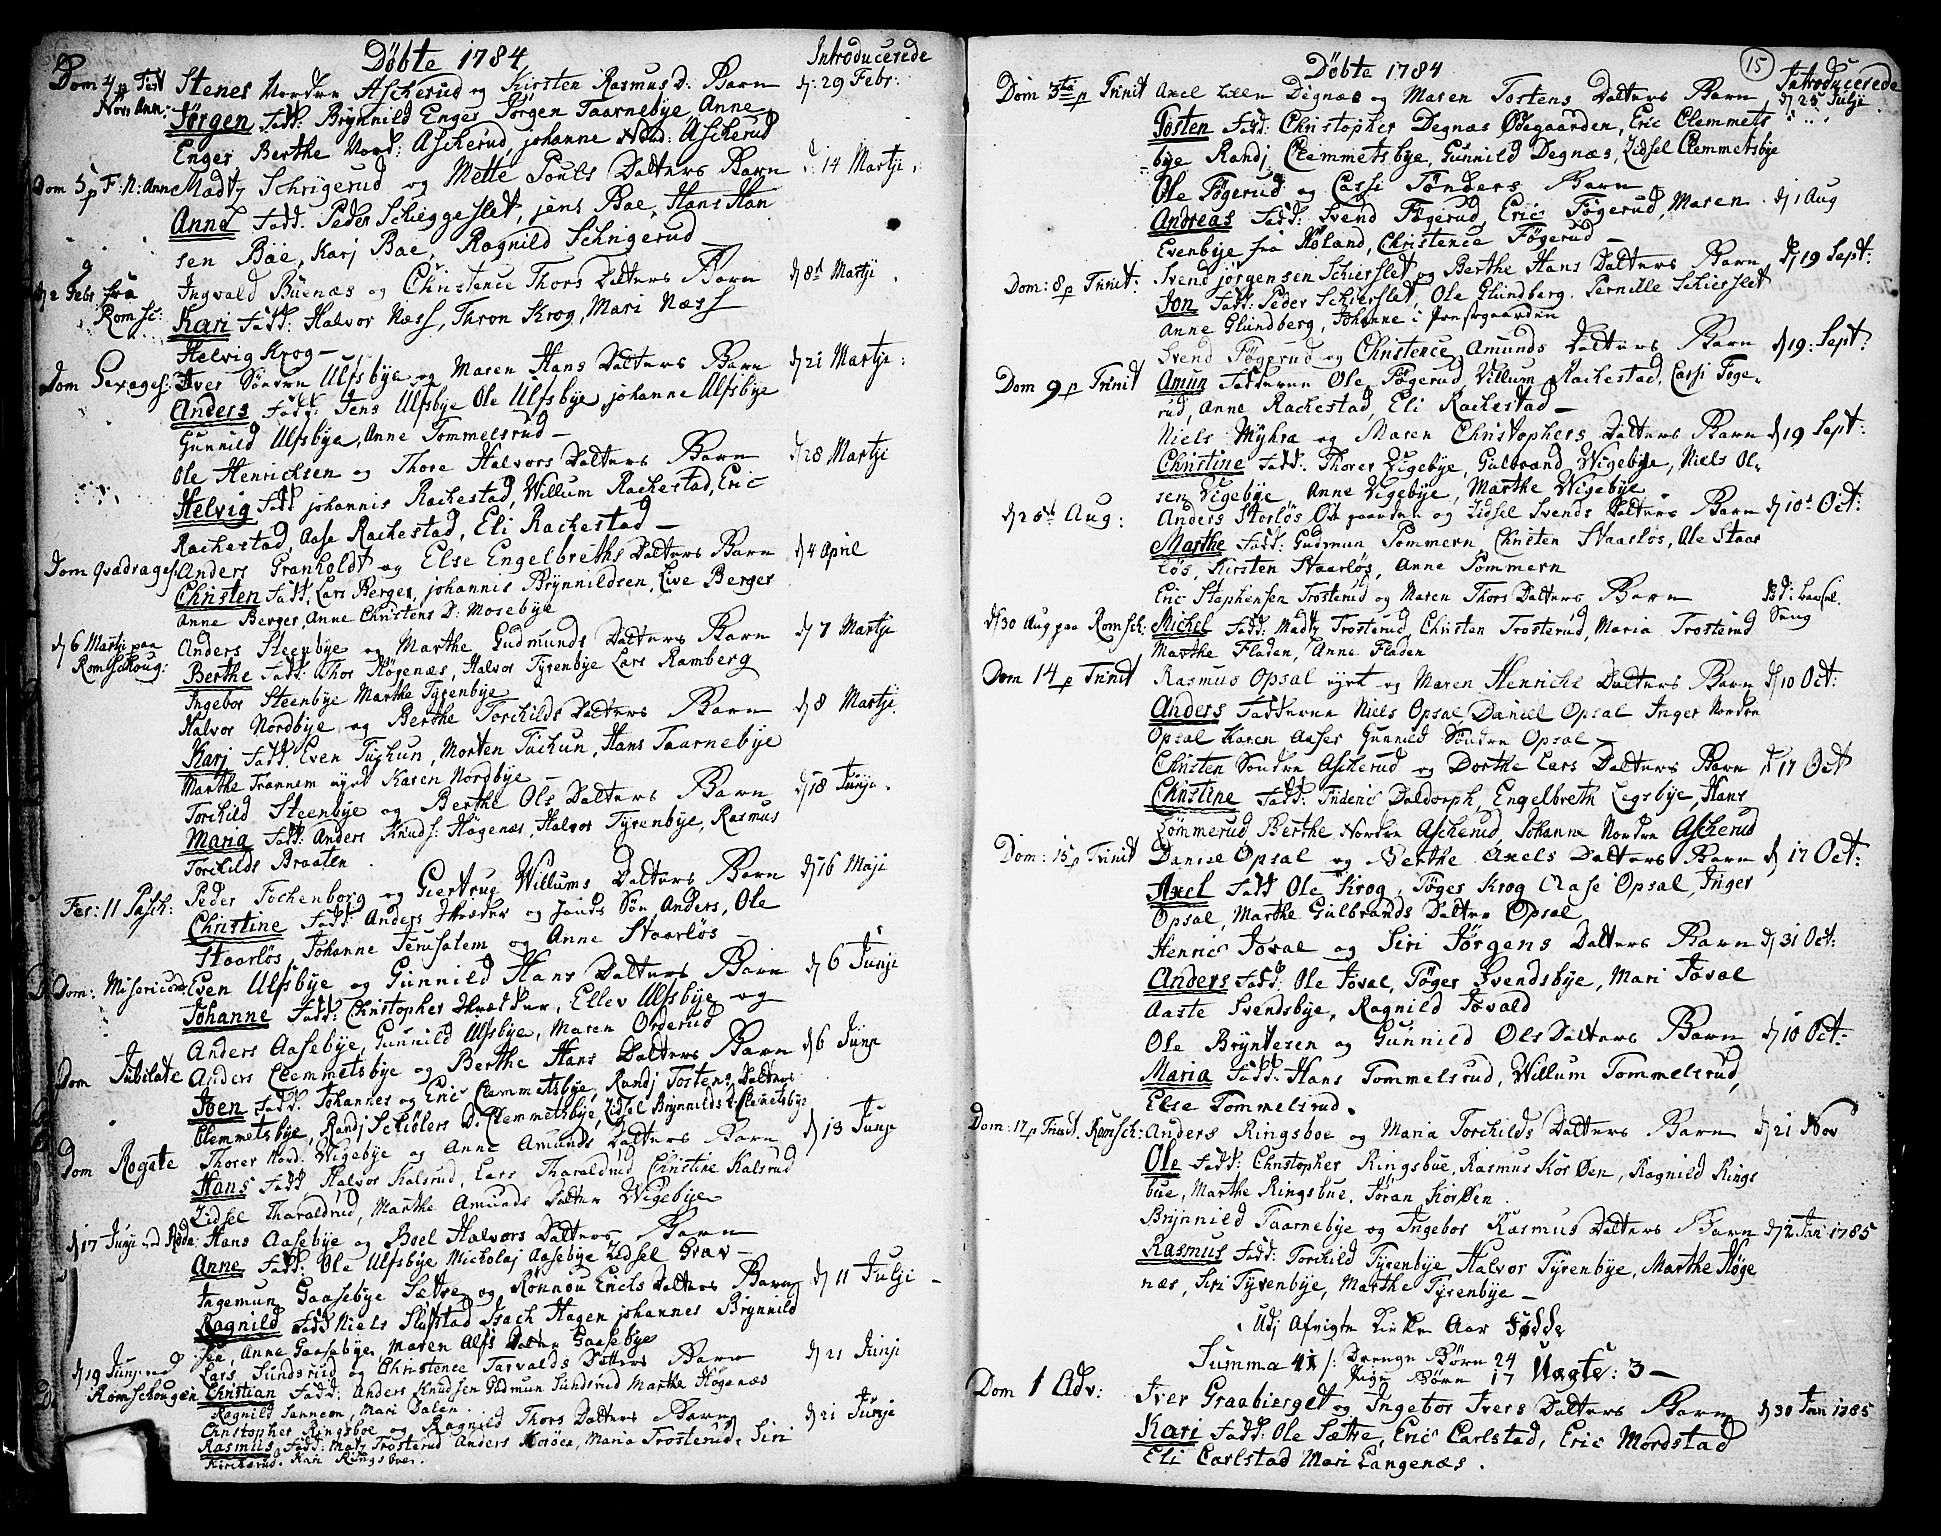 Döbte 1784
Introducerede
Dom 4 p Fest
Nov: Ann:
Stenes Nordre Ascherud og Kirsten Rasmus D: Barn
d: 29 Febr:
Jörgen Fadd: Brynnild Enger Jörgen Taarnebye, Anne
Enger Berthe Nord: Ascherud, johanne Nord: Ascherud
Dom 5 p F: N: Ann:
Madtz Schrigerud og Mette Pouls Datters Barn
d: 14 Martji
Anne Fadd: Peder Schieggeslet, jens Bae, Hans Han
sen Bae, Karj Bae, Ragnild Schrigerud
d 2 Febr fra
Romsc:
Ingvald Buenæs og Christence Thors Datters Barn
d 8d Martji
Kari Fadd: Halvor Næss, Thron Krog, Mari Næss
Helvig Krog
Dom Sexages:
Iver Söndre Ulfsbye og Maren Hans Datters Barn
d 21 Martji:
Anders Fadd: Jens Ulfsbye Ole Ulfsbye, johanne Ulfsbye
Gunnild Ulfsbye, Anne Tommelsrud
Ole Henrichsen og Thore Halvors Datters Barn
d 28 Martji
Helvig Fadd johannis Rachestad, Willum Rachestad, Eric
Rachestad, Aase Rachestad, Eli Rachestad
Dom Qvadrages:
Anders Granholdt og Else Engelbreths Datters Barn
d 4 April
Christen Fadd: Lars Berger, johannis Brynnildsen, Live Berger
Anne Berger, Anne Christens D: Mosebye
d 6 Martji paa
Romschoug:
Anders Steenbye og Marthe Gudmunds Datters Barn
d 7 Martji
Berthe Fadd: Thor Högenæs, Halvor Tyrenbye Lars Ramberg
Ingebor Steenbye Marthe Tyrenbye
Halvor Nordbye og Berthe Torchilds Datters Barn
d 8 Martji
Karj Fadd: Even Tuchun, Morten Tuchun, Hans Taarnebye
Marthe Trannem Karen Nordbye
Torchild Steenbye og Berthe Ols Datters Barn
d 18 Junji
Maria Fadd: Anders Knuds: Högenæs, Halvor Tyrenbye, Rasmus
Torchilds Braaten
Fer: 11 Pasch:
Peder Fochenborg og Giertrug Willums Datters Barn
d 16 Maji
Christine Fadd: Anders og Sön Anders, Ole
Staarlös, Johanne Jerusalem og Anne Staarlös
Dom: Misericord:
Even Ulfsbye og Gunnild Hans Datters Barn
d 6 Junji
Johanne Fadd: Christopher Ellev Ulfsbye og
Anders Aasebye, Gunnild Ulfsbye, Maren Orderud
Dom Jubilate
Anders Clemmetsbye og Berthe Hans Datters Barn
d 6 Junji
Joen Fadd: Johannes og Eric Clemmetsbye, Randj Tostens Datter
Clemmetsbye, Randj Schiölers D: Clemmetsbye, Zidsel Brynnilds D: Clemetsbye
Dom Rogate
Thorer Nord: Wigebye og Anne Amunds Datters Barn
d 13 Junji
Hans Fadd Halvor Kalsrud, Lars Tharaldrud Christine Kalsrud
Zidsel Tharaldrud, Marthe Amunds Datter Wigebye
d 17 Junji ved Röde:
Hans Aasebye og Boel Halvors Datters Barn
Anne Fadd: Ole Ulfsbye Micholaj Aasebye Zidsel Grav
Ingemun Gaasebye Sætre og Rönnou Erichs Datters Barn
d 11 Julji
Ragnild Fadd Niels Slustad Isach Hagen johannes Brynnild
Anne Gaasebye, Maren Alfs Datter Gaasebye
d 19 Junji ved
Romschougen
Lars Sundsrud og Christence Tarvalds Datters Barn
d 21 Junji
Christian Fadd: Anders Knudsen Gudmun Sundsrud Marthe Högenæs
Ragnild Mari Dalen
Christopher Ringsboe og Ragnild Thors Datters Barn
d 21 Junji
Rasmus Fadd: Matz Trosterud Anders Korsöen, Maria Trosterud, Siri
Kari Ringsboe
Döbte 1784
15
Introducerede
Dom 3tia p Trinit
Axel Lille Degnæs og Maren Tostens Datters Barn
d 25 Julji
Tosten Fadd: Christopher Degnæs Ödegaarden, Eric Clemmets
bye Randj Clemmetsbye, Gunnild Degnæs, Zidsel Clemmetsbye
Ole Fögerud og Cassi Tönders Barn
Andreas Fadd: Svend Fögerud, Eric Fögerud, Maren
d 1 Aug
Evenbye fra Höland, Christence Fögerud
Dom: 8 p Trinit:
Svend jörgensen Schierslet og Berthe Hans Datters Barn
d 19 Sept:
Jon Fadd: Peder Schierslet, Ole Glundberg, Pernille Schierslet
Anne Glundberg, Johanne i Prestegaarden
Svend Fögerud og Christence Amunds Datters Barn
d 19: Sept:
Dom 9 p Trinit
Amun Fadderne Ole Fögerud, Villum Rachestad, Cassi Föge
rud, Anne Rachestad, Eli Rachestad
Niels Myhra og Maren Christophers Datters Barn
d 19 Sept:
Christine Fadd: Thorer Vigebye, Gulbrand Wigebye, Niels Ol
sen Vigebye, Anne Vigebye, Marthe Wigebye
Aug:
Anders Storlös Ödegaarden og Zidsel Svends Datters Barn
d 10d Oct:
Marthe Fadd: Gudmun Sommern Christen Staarlös, Ole Staar
lös, Kirsten Staarlös, Anne Sommern
Eric Stephensen Trosterud og Maren Thors Datters Barn
d 30 Aug paa Romsch:
Michel Fadd: Madtz Trosterud, Christen Trosterud, Maria Trosterud
Marthe Fladen, Anne Fladen
död i Barsel
Seng
Dom 14 p Trinit
Rasmus Opsal og Maren Henrichs Datters Barn
d 10 Oct:
Anders Fadderne Niels Opsal, Daniel Opsal Inger Nordre
Opsal Karen Aaser Gunnild Söndre Opsal
Christen Söndre Ascherud og Dorthe Lars Datters Barn
d 17 Oct
Christine Fadd: Frideric Daldorph, Engelbreth Legsbye, Hans
Lömmerud Berthe Nordre Ascherud, Johanne Nordre Ascherud
Dom: 15 p Trinit
Daniel Opsal og Berthe Axels Datters Barn
d 17 Oct:
Axel Fadd Ole Krog, Töger Krog Aase Opsal, Inger
Opsal, Marthe Gulbrands Datter Opsal
Henric Joval og Siri Jörgens Datters Barn
d 31 Oct:
Anders Fadd: Ole Joval, Töger Svendsbye, Mari Joval
Aaste Svendsbye, Ragnild Jovald
Ole Bryntesen og Gunnild Ols Datters Barn
d 10 Oct:
Maria Fadd: Hans Tommelsrud, Willum Tommelsrud,
Else Tommelsrud.
Dom: 17 p Trinit. Romsch:
Anders Ringsboe og Maria Torchilds Datters Barn
d 21 Nov
Ole Fadd: Christopher Ringsbue, Rasmus Korsöen, Ragnild Rings
bue, Marthe Ringsbue, Jöran Korsöen
Brynnild Taarnebye og Ingebor Rasmus Datters Barn
d 2 Jan 1785
Rasmus Fadd: Torchild Tyrenbye Halvor Tyrenbye, Marthe Höge
næs, Siri Tyrenbye, Marthe Tyrenbye
Udj Afvigte Kirke Aar Födde
Summa 41 /: Drenge Börn 24
Pige Börn 17
Uægte: 3
Dom 1 Adv:
Iver Graabierget og Ingebor Ivers Datters Barn
d 30 Jan 1785
Kari Fadd: Ole Sætre, Eric Carlstad, Eric Mordstad
Eli Carlstad Mari Langenæs.